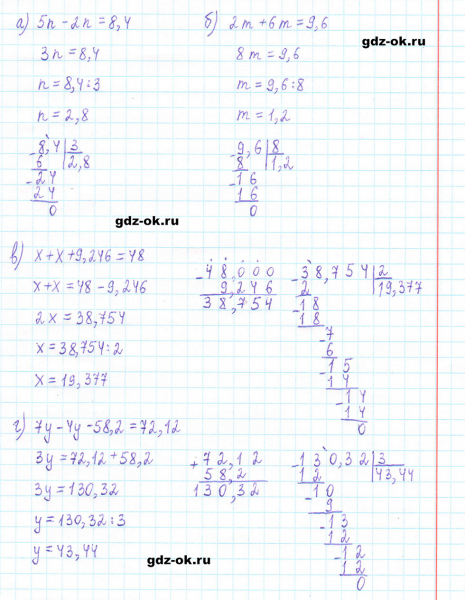 а) 5n - 2n = 8,4
3n = 8,4
n = 8,4 : 3
n = 2,8
- 8,4 | 3
6 | 2,8
- 24
24
0
б) 2m + 6m = 9,6
gdz-ok.ru
8m = 9,6
m = 9,6 : 8
m = 1,2
- 9,6 | 8
8 | 1,2
- 16
16
0
gdz-ok.ru
в) x + x + 9,246 = 48
x + x = 48 - 9,246
2x = 38,754
x = 38,754 : 2
x = 19,377
- 48,000
9,246
38,754
- 38,754 | 2
2 | 19,377
- 18
18
- 7
6
- 15
14
- 14
14
0
г) 7y - 4y - 58,2 = 72,12
3y = 72,12 + 58,2
3y = 130,32
y = 130,32 : 3
y = 43,44
gdz-ok.ru
+ 72,12
58,2
130,32
- 130,32 | 3
12 | 43,44
- 10
9
- 13
12
- 12
12
0
gdz-ok.ru